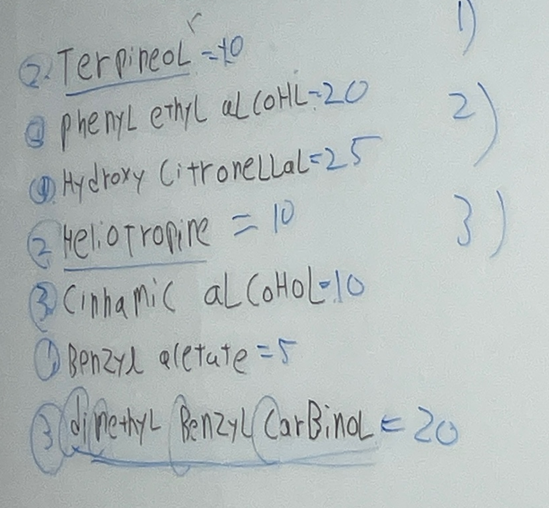 ② Terpineol = 10 1)
① phenyl ethyl alcohl = 20 2)
① Hydroxy Citronellal = 25
② Heliotropine = 10 3)
③ Cinnamic alcohol = 10
① Benzyl acetate = 5
③ dimethyl Benzyl CarBinol = 20